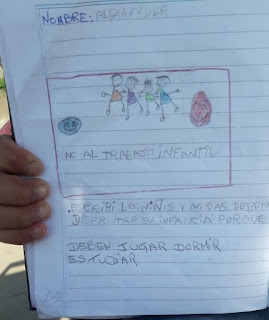 NOMBRE: ALEXANDER
NO AL TRABAJO INFANTIL
.ESCRIBI LOS NIÑOS Y NIÑAS DEBEN
DISFRUTAR SU INFANCIA PORQUE
DEBEN JUGAR DORMIR
ESTUDIAR